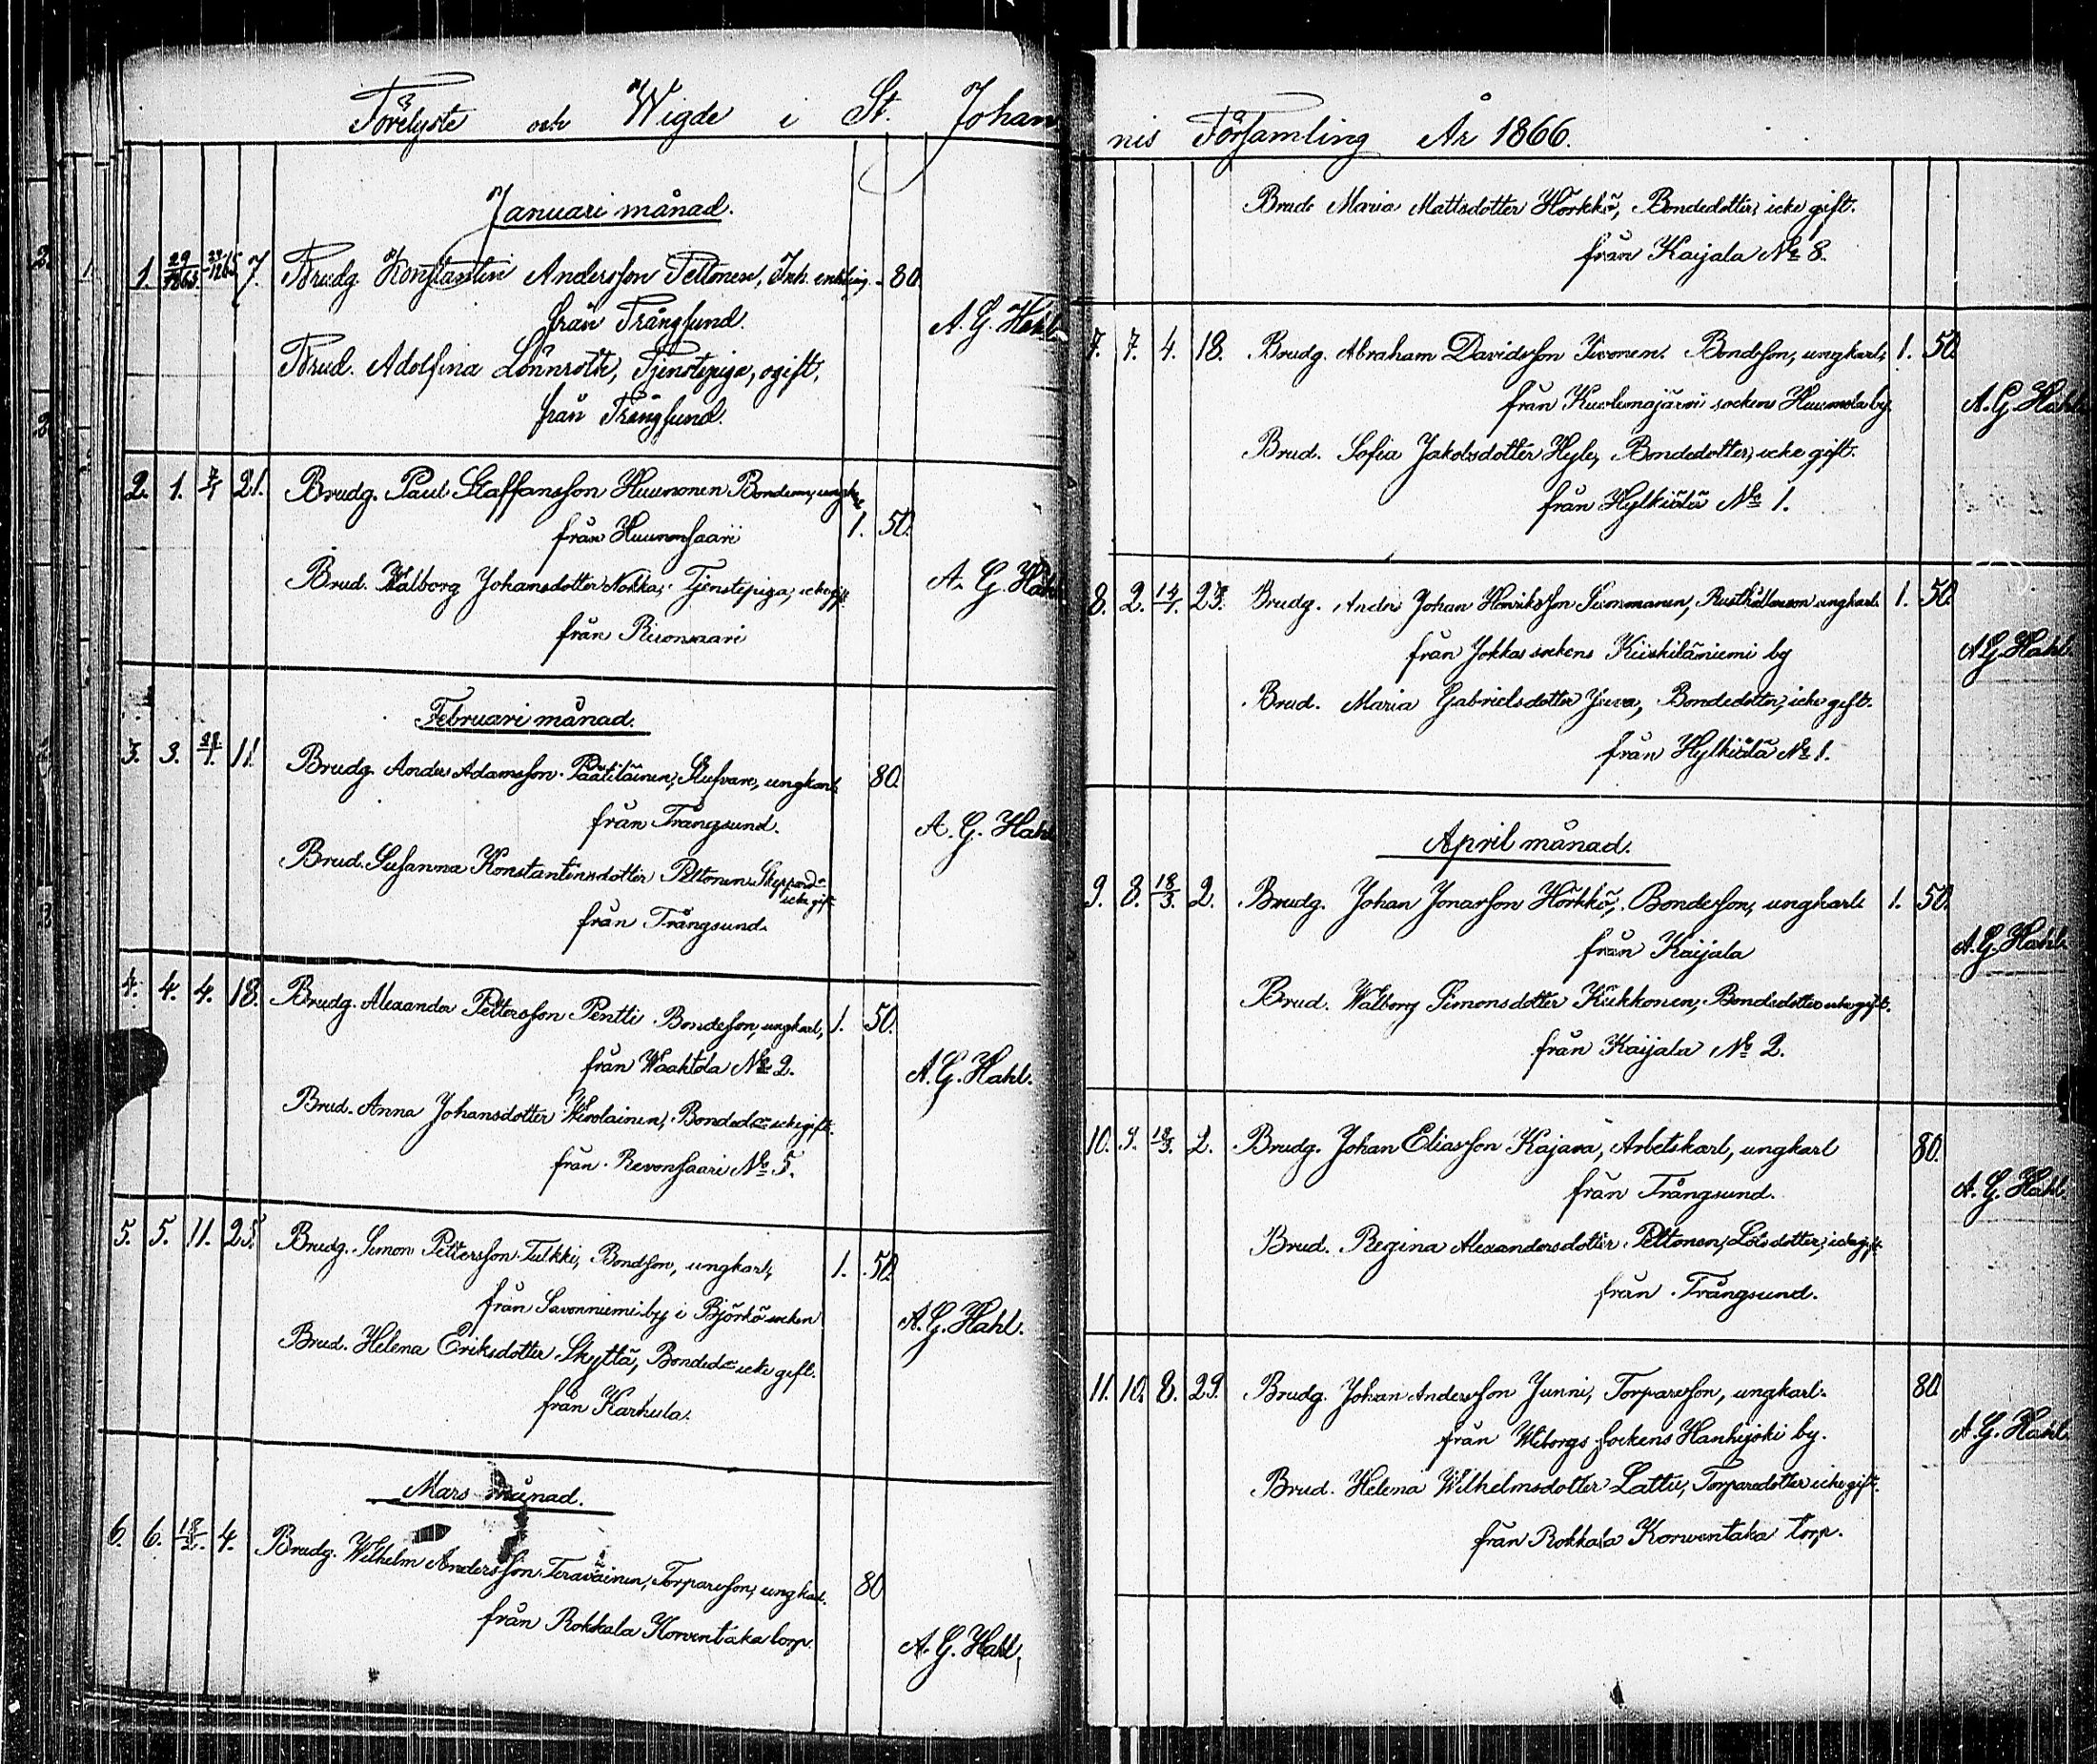 Förelyste och Wigde i St. Johan
Januari månad.
1. 29/1865. 7. Brudg. Konstantin Andersson Peltonen, Inh. enkling. 80.
från Trångsund.
A. G. Hahl
Brud. Adolfina Lönnroth, Tjenstepiga, ogift.
från Trångsund.
2. 1. 7/1 21. Brudg. Paul Staffansson Huunonen
från Huunonsaari 1. 50.
Brud. Walborg Johansdotter Nokka, Tjenstepiga, icke gift
A. G. Hahl
från Revonsaari
Februari månad.
3. 3. 28/1. 11. Brudg. Anders Adamsson Päätiläinen, ungkarl 80.
från Trångsund.
A. G. Hahl
Brud. Susanna Konstantinsdotter Peltonen
icke gift
från Trångsund.
4. 4. 4. 18. Brudg. Alexander Pettersson Pentti Bondeson, ungkarl, 1. 50.
från Waahtola No 2.
A. G. Hahl.
Brud. Anna Johansdotter Bonded=r icke gift.
från Revonsaari No 5.
5. 5. 11. 25. Brudg. Simon Pettersson Tulkki, Bondson, ungkarl, 1. 50.
från Savonniemi by i Björkö socken
A. G. Hahl.
Brud. Helena Eriksdotter Skyttä, Bonded=r icke gift.
från Karhula.
Mars månad.
6. 6. 18/2. 4. Brudg. Wilhelm Andersson Teräväinen, Torpareson, ungkarl. 80
från Rokkala Korventaka torp.
A. G. Hahl.
nis Församling År 1866.
Brud. Maria Mattsdotter Hörkkö, Bondedotter, icke gift.
från Kaijala No 8.
7. 7. 4. 18. Brudg. Abraham Davidsson Bondson, ungkarl, 1. 50.
från Kuolemajärvi sockens by
A. G. Hahl
Brud. Sofia Jakobsdotter Hyle, Bondedotter, icke gift.
från Hylkiälä No 1.
8. 2. 14/1. 23. Brudg. Anders Johan Henriksson ungkarl. 1. 50.
från Jokkas sockens Kiiskiläniemi by
A. G. Hahl.
Brud. Maria Gabrielsdotter Bondedotter, icke gift.
från Hylkiälä No 1.
April månad.
9. 8. 18/3. 2. Brudg. Johan Jonasson Hörkkö, Bondesson, ungkarl 1. 50.
från Kaijala
A. G. Hahl.
Brud. Walborg Simonsdotter Kukkonen, Bondedotter icke gift.
från Kaijala No 2.
10. 9. 18/3. 2. Brudg. Johan Eliasson Kajava, Arbetskarl, ungkarl 80.
från Trångsund.
A. G. Hahl
Brud. Regina Alexandersdotter Peltonen, icke gift
från Trångsund.
11. 10. 8. 29. Brudg. Johan Andersson Junni, Torpareson, ungkarl. 80
från Wiborgs sockens Hanhijoki by.
A. G. Hahl
Brud. Helena Wilhelmsdotter Lattu, Torparedotter icke gift.
från Rokkala Korventaka torp.